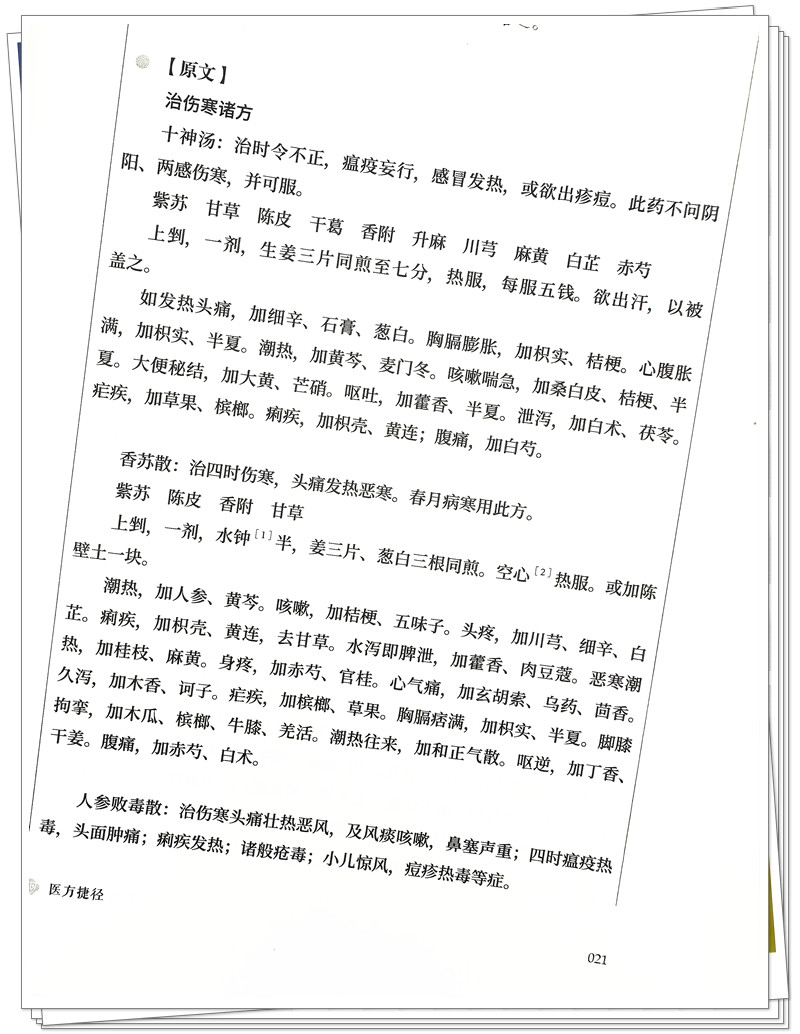 【原文】
治伤寒诸方
十神汤：治时令不正，瘟疫妄行，感冒发热，或欲出疹痘。此药不问阴
阳、两感伤寒，并可服。
紫苏 甘草 陈皮 干葛 香附 升麻 川芎 麻黄 白芷 赤芍
上剉，一剂，生姜三片同煎至七分，热服，每服五钱。欲出汗，以被
盖之。
如发热头痛，加细辛、石膏、葱白。胸膈膨胀，加枳实、桔梗。心腹胀
满，加枳实、半夏。潮热，加黄芩、麦门冬。咳嗽喘急，加桑白皮、桔梗、半
夏。大便秘结，加大黄、芒硝。呕吐，加藿香、半夏。泄泻，加白术、茯苓。
疟疾，加草果、槟榔。痢疾，加枳壳、黄连；腹痛，加白芍。
香苏散：治四时伤寒，头痛发热恶寒。春月病寒用此方。
紫苏 陈皮 香附 甘草
上剉，一剂，水钟[1]半，姜三片、葱白三根同煎。空心[2]热服。或加陈
壁土一块。
潮热，加人参、黄芩。咳嗽，加桔梗、五味子。头疼，加川芎、细辛、白
芷。痢疾，加枳壳、黄连，去甘草。水泻即脾泄，加藿香、肉豆蔻。恶寒潮
热，加桂枝、麻黄。身疼，加赤芍、官桂。心气痛，加玄胡索、乌药、茴香。
久泻，加木香、诃子。疟疾，加槟榔、草果。胸膈痞满，加枳实、半夏。脚膝
拘挛，加木瓜、槟榔、牛膝、羌活。潮热往来，加和正气散。呕逆，加丁香、
干姜。腹痛，加赤芍、白术。
人参败毒散：治伤寒头痛壮热恶风，及风痰咳嗽，鼻塞声重；四时瘟疫热
毒，头面肿痛；痢疾发热；诸般疮毒；小儿惊风，痘疹热毒等症。
医方捷径
021